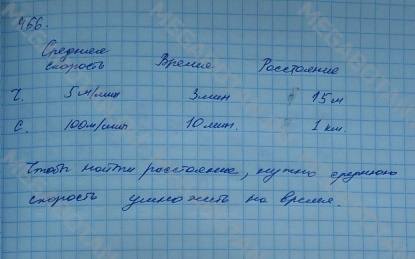 466.
Средняя Время Расстояние
скорость
Ч. 5 м/мин 3 мин 15 м
С. 100 м/мин 10 мин. 1 км.
Чтобы найти расстояние, нужно среднюю
скорость умножить на время.